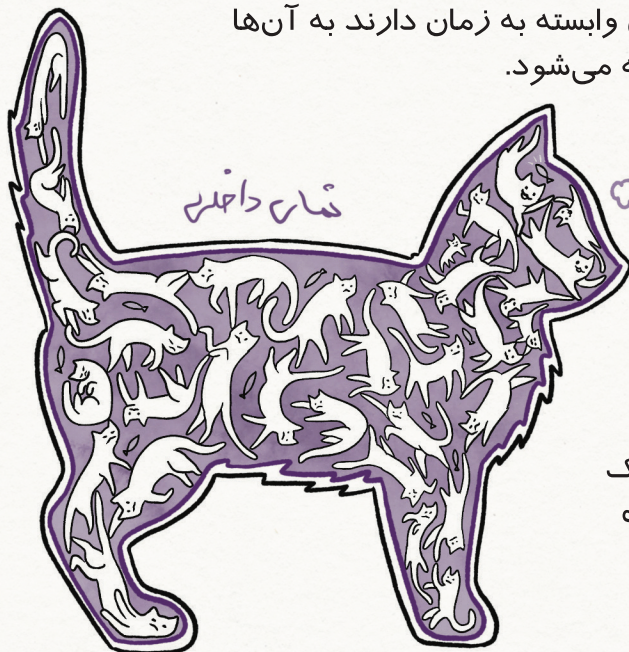 وابسته به زمان دارند به آن‌ها
می‌شود.
نمای داخلی